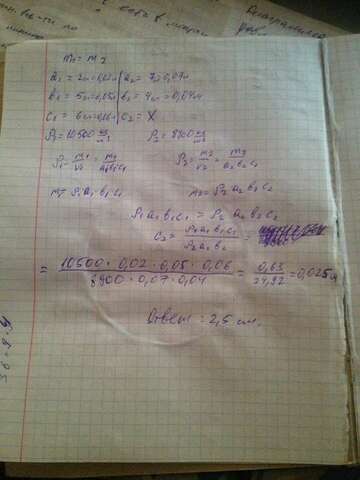 m₁ = m₂
a₁ = 2см=0,02м | a₂ = 7=0,07м
b₁ = 5см=0,05м | b₂ = 4см=0,04м
c₁ = 6см=0,06м | c₂ = X
ρ₁=10500 кг/м³ ρ₂ = 8900 кг/м³
ρ₁ = m₁/V₁ = m₁/a₁b₁c₁ ρ₂ = m₂/V₂ = m₂/a₂b₂c₂
m₁= ρ₁a₁b₁c₁ m₂= ρ₂a₂b₂c₂
ρ₁a₁b₁c₁ = ρ₂a₂b₂c₂
c₂ = ρ₁a₁b₁c₁/ρ₂a₂b₂ =
= 10500·0,02·0,05·0,06/8900·0,07·0,04 = 0,63/24,92 =0,025м
Ответ: 2,5 см.